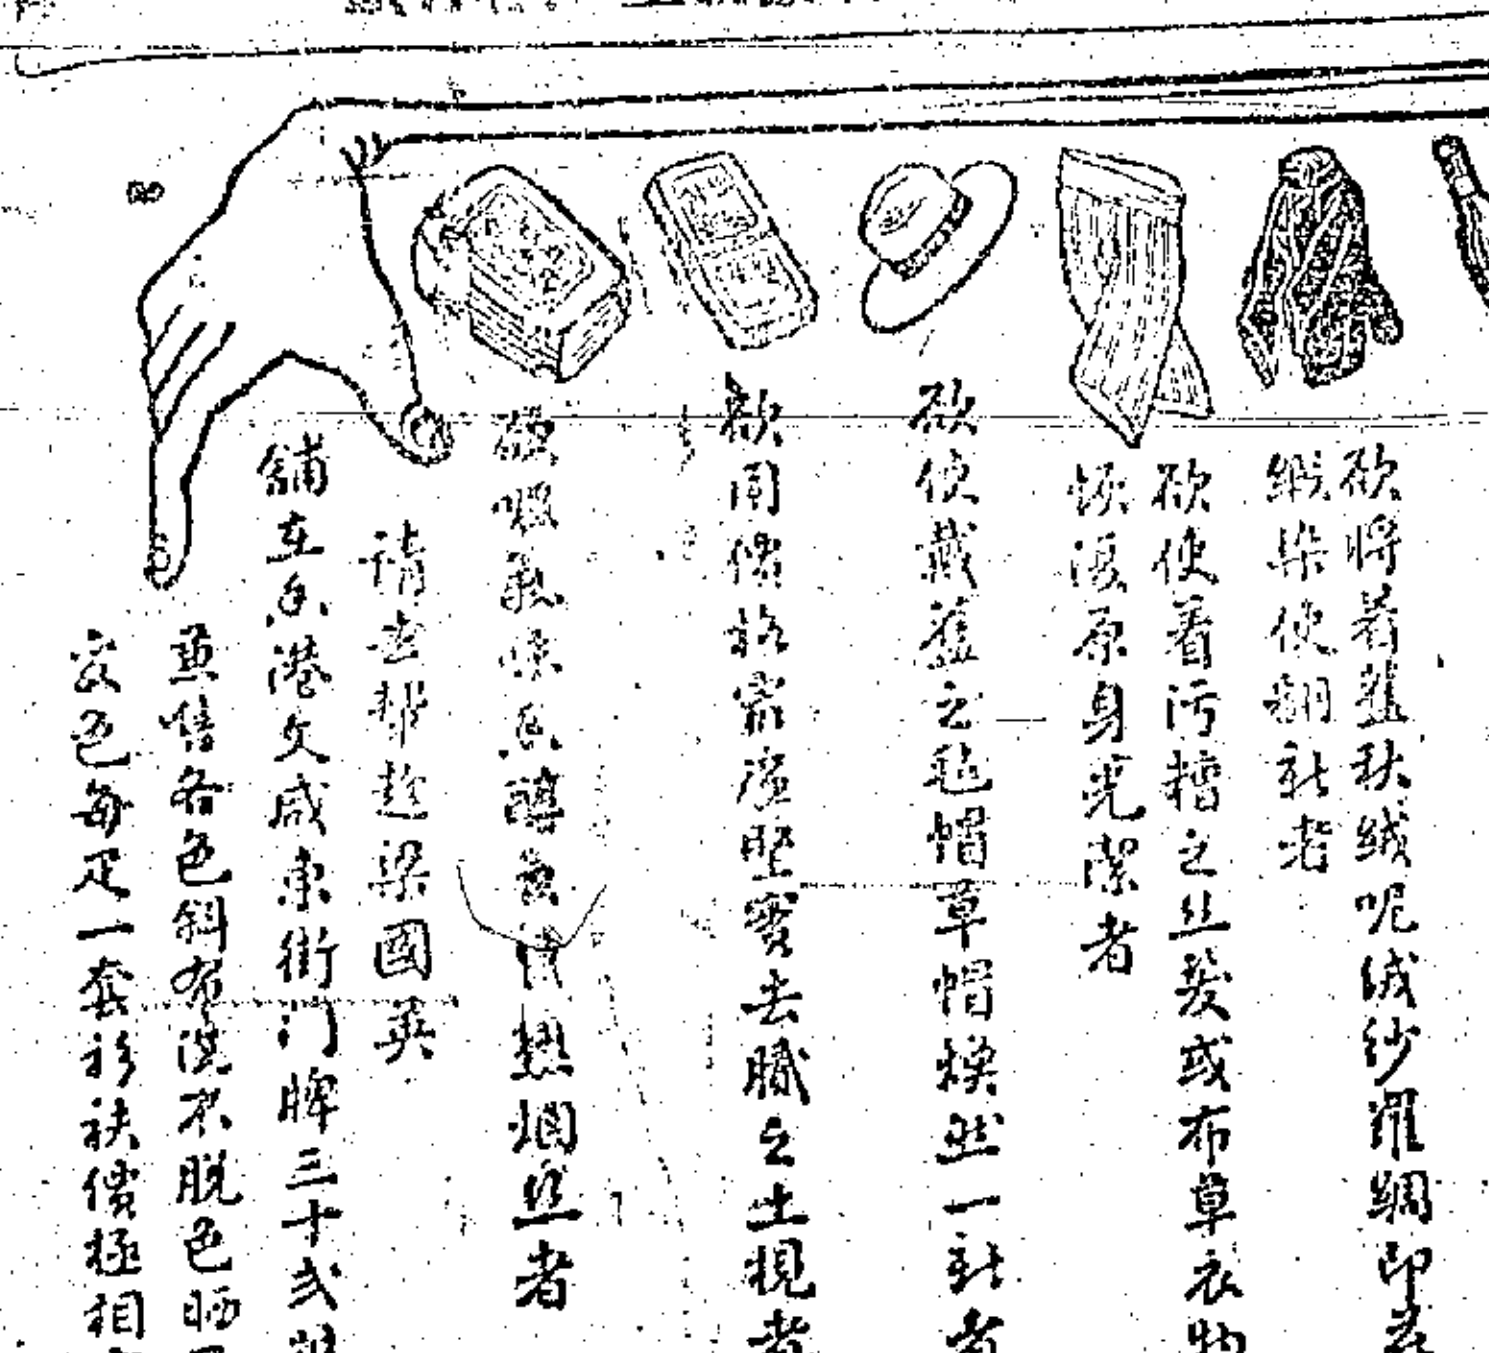 欲將着舊秋絨呢絨紗羅綢
緞染使翻新者
欲使着污糟之丝髮或布草衣物
恢復原身光潔者
欲使戴舊之毡帽草帽煥然一新者
欲用價格廉堅實去膩之土視者
吸味香醇熟烟丝者
請去幫趁梁國英
舖在香港文咸東街门牌三十弍號
兼售各色斜布洗不脱色晒
色每疋一套衫袂價極相